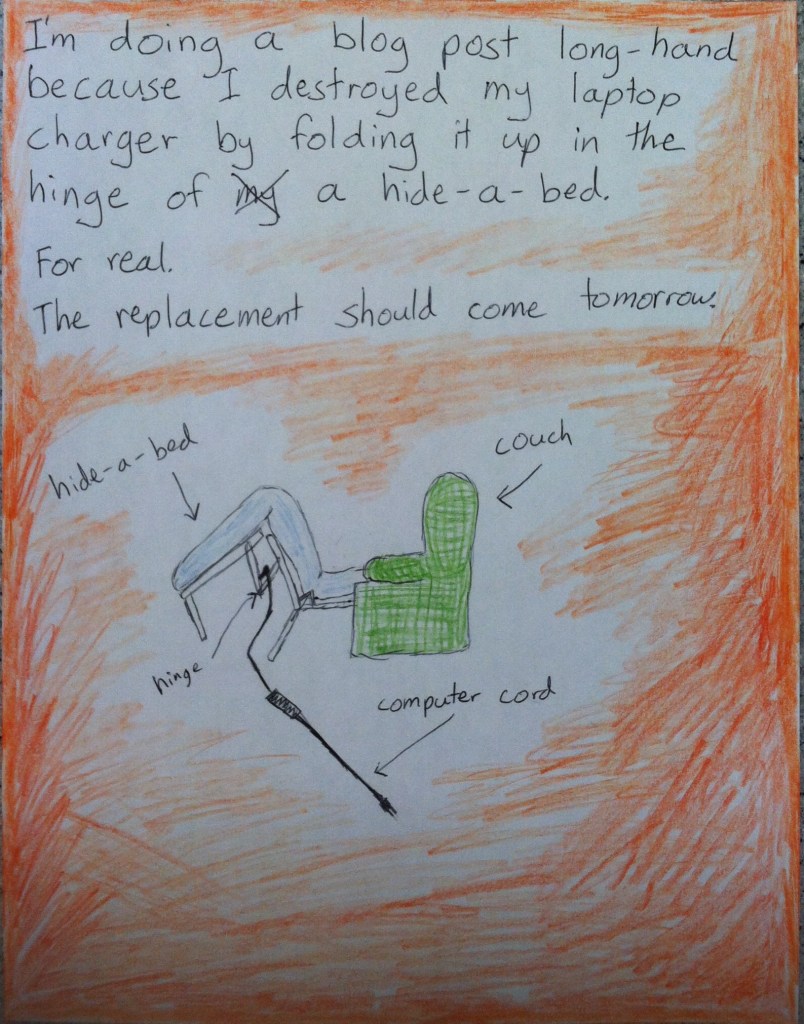 I'm doing a blog post long-hand
because I destroyed my laptop
charger by folding it up in the
hinge of my a hide-a-bed.
For real.
The replacement should come tomorrow.
couch
hide-a-bed
hinge
computer cord